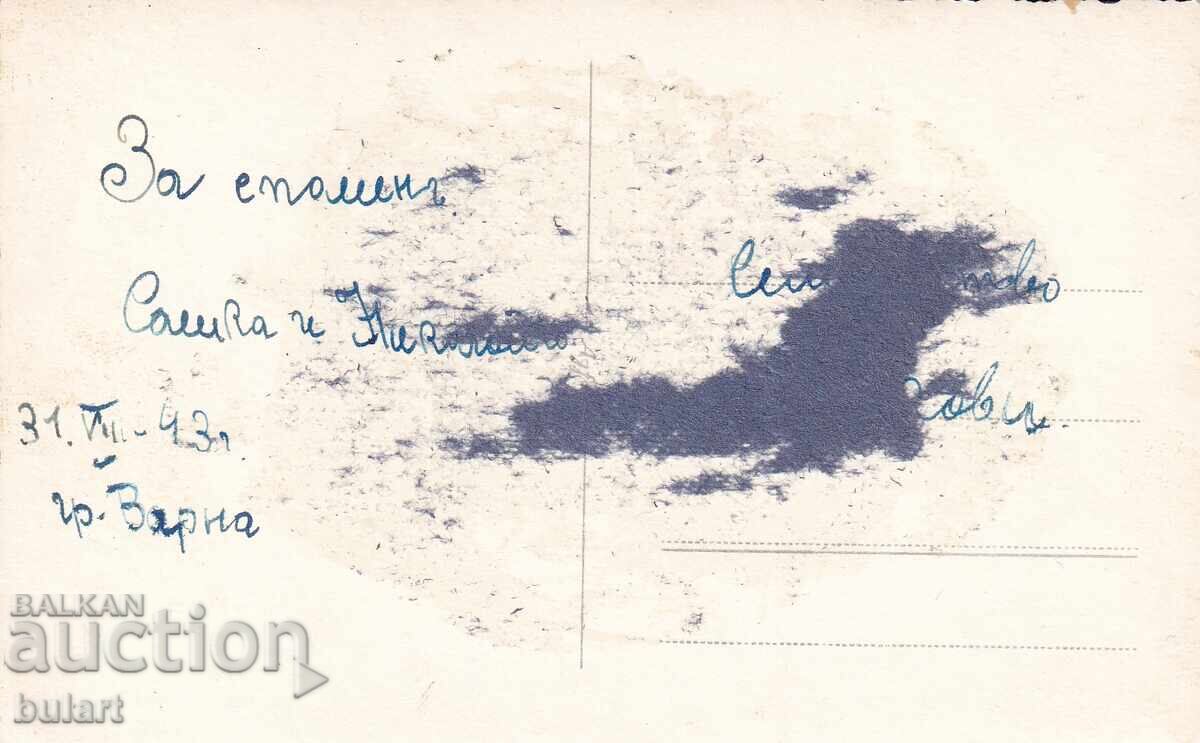 За споменъ
Сашка и Николай
31.VIII-43г.
гр. Варна
BALKAN
auction
bulart